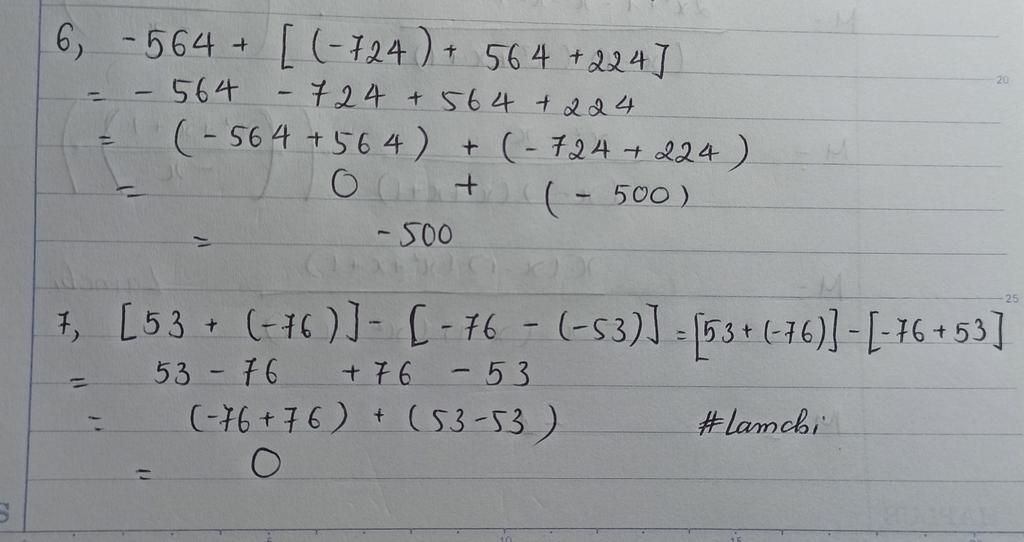 6, -564 + [(-724) + 564 + 224]
= - 564 - 724 + 564 + 224
= (-564 + 564) + (-724 + 224)
= 0 + (-500)
= -500
7, [53 + (-76)] - [-76 - (-53)] = [53 + (-76)] - [-76 + 53]
= 53 - 76 + 76 - 53
= (-76 + 76) + (53 - 53)
#Lamchi
= 0